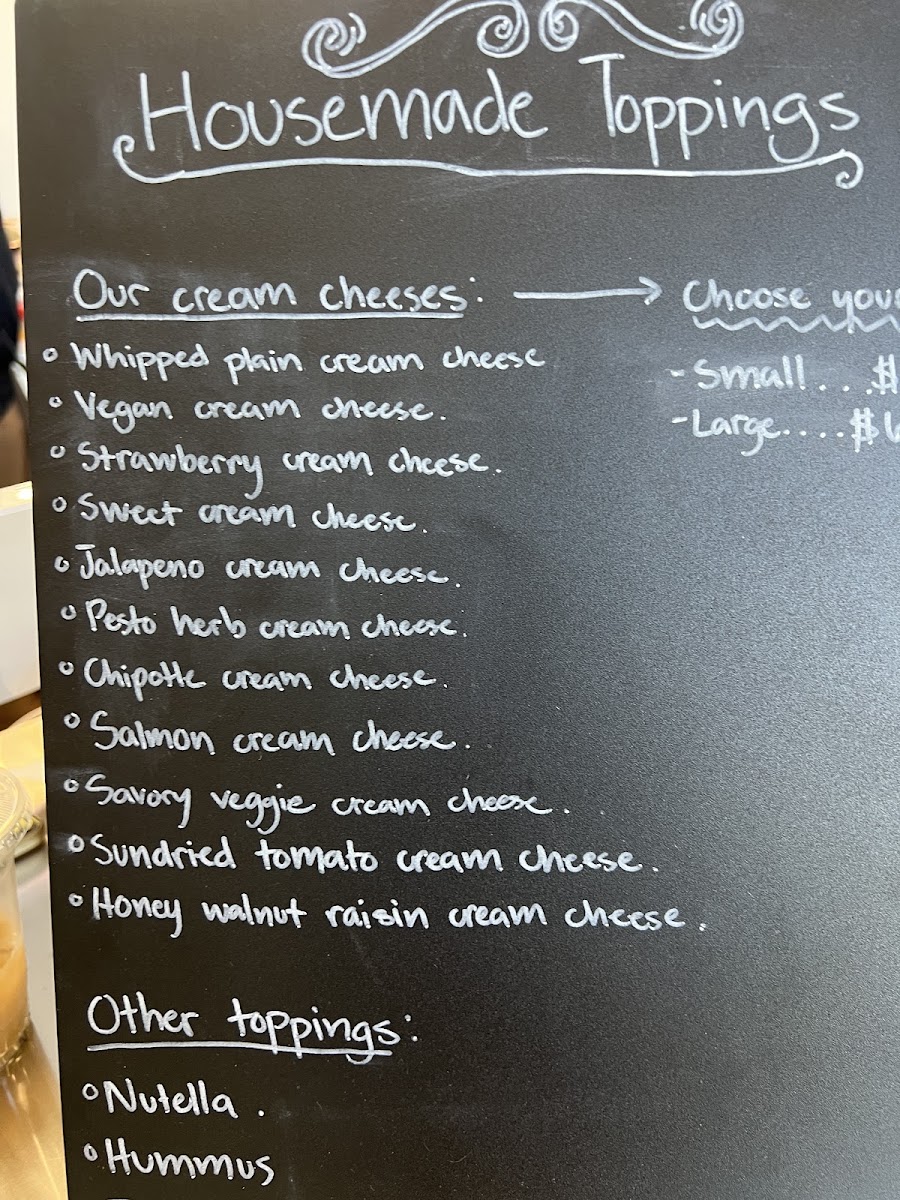 Housemade Toppings
Our cream cheeses: → Choose your
° Whipped plain cream cheese
- Small... $
° Vegan cream cheese.
- Large.... $
° Strawberry cream cheese.
° Sweet cream cheese.
° Jalapeno cream cheese.
° Pesto herb cream cheese.
° Chipotle cream cheese.
° Salmon cream cheese.
° Savory veggie cream cheese.
° Sundried tomato cream cheese.
° Honey walnut raisin cream cheese.
Other toppings:
° Nutella.
° Hummus